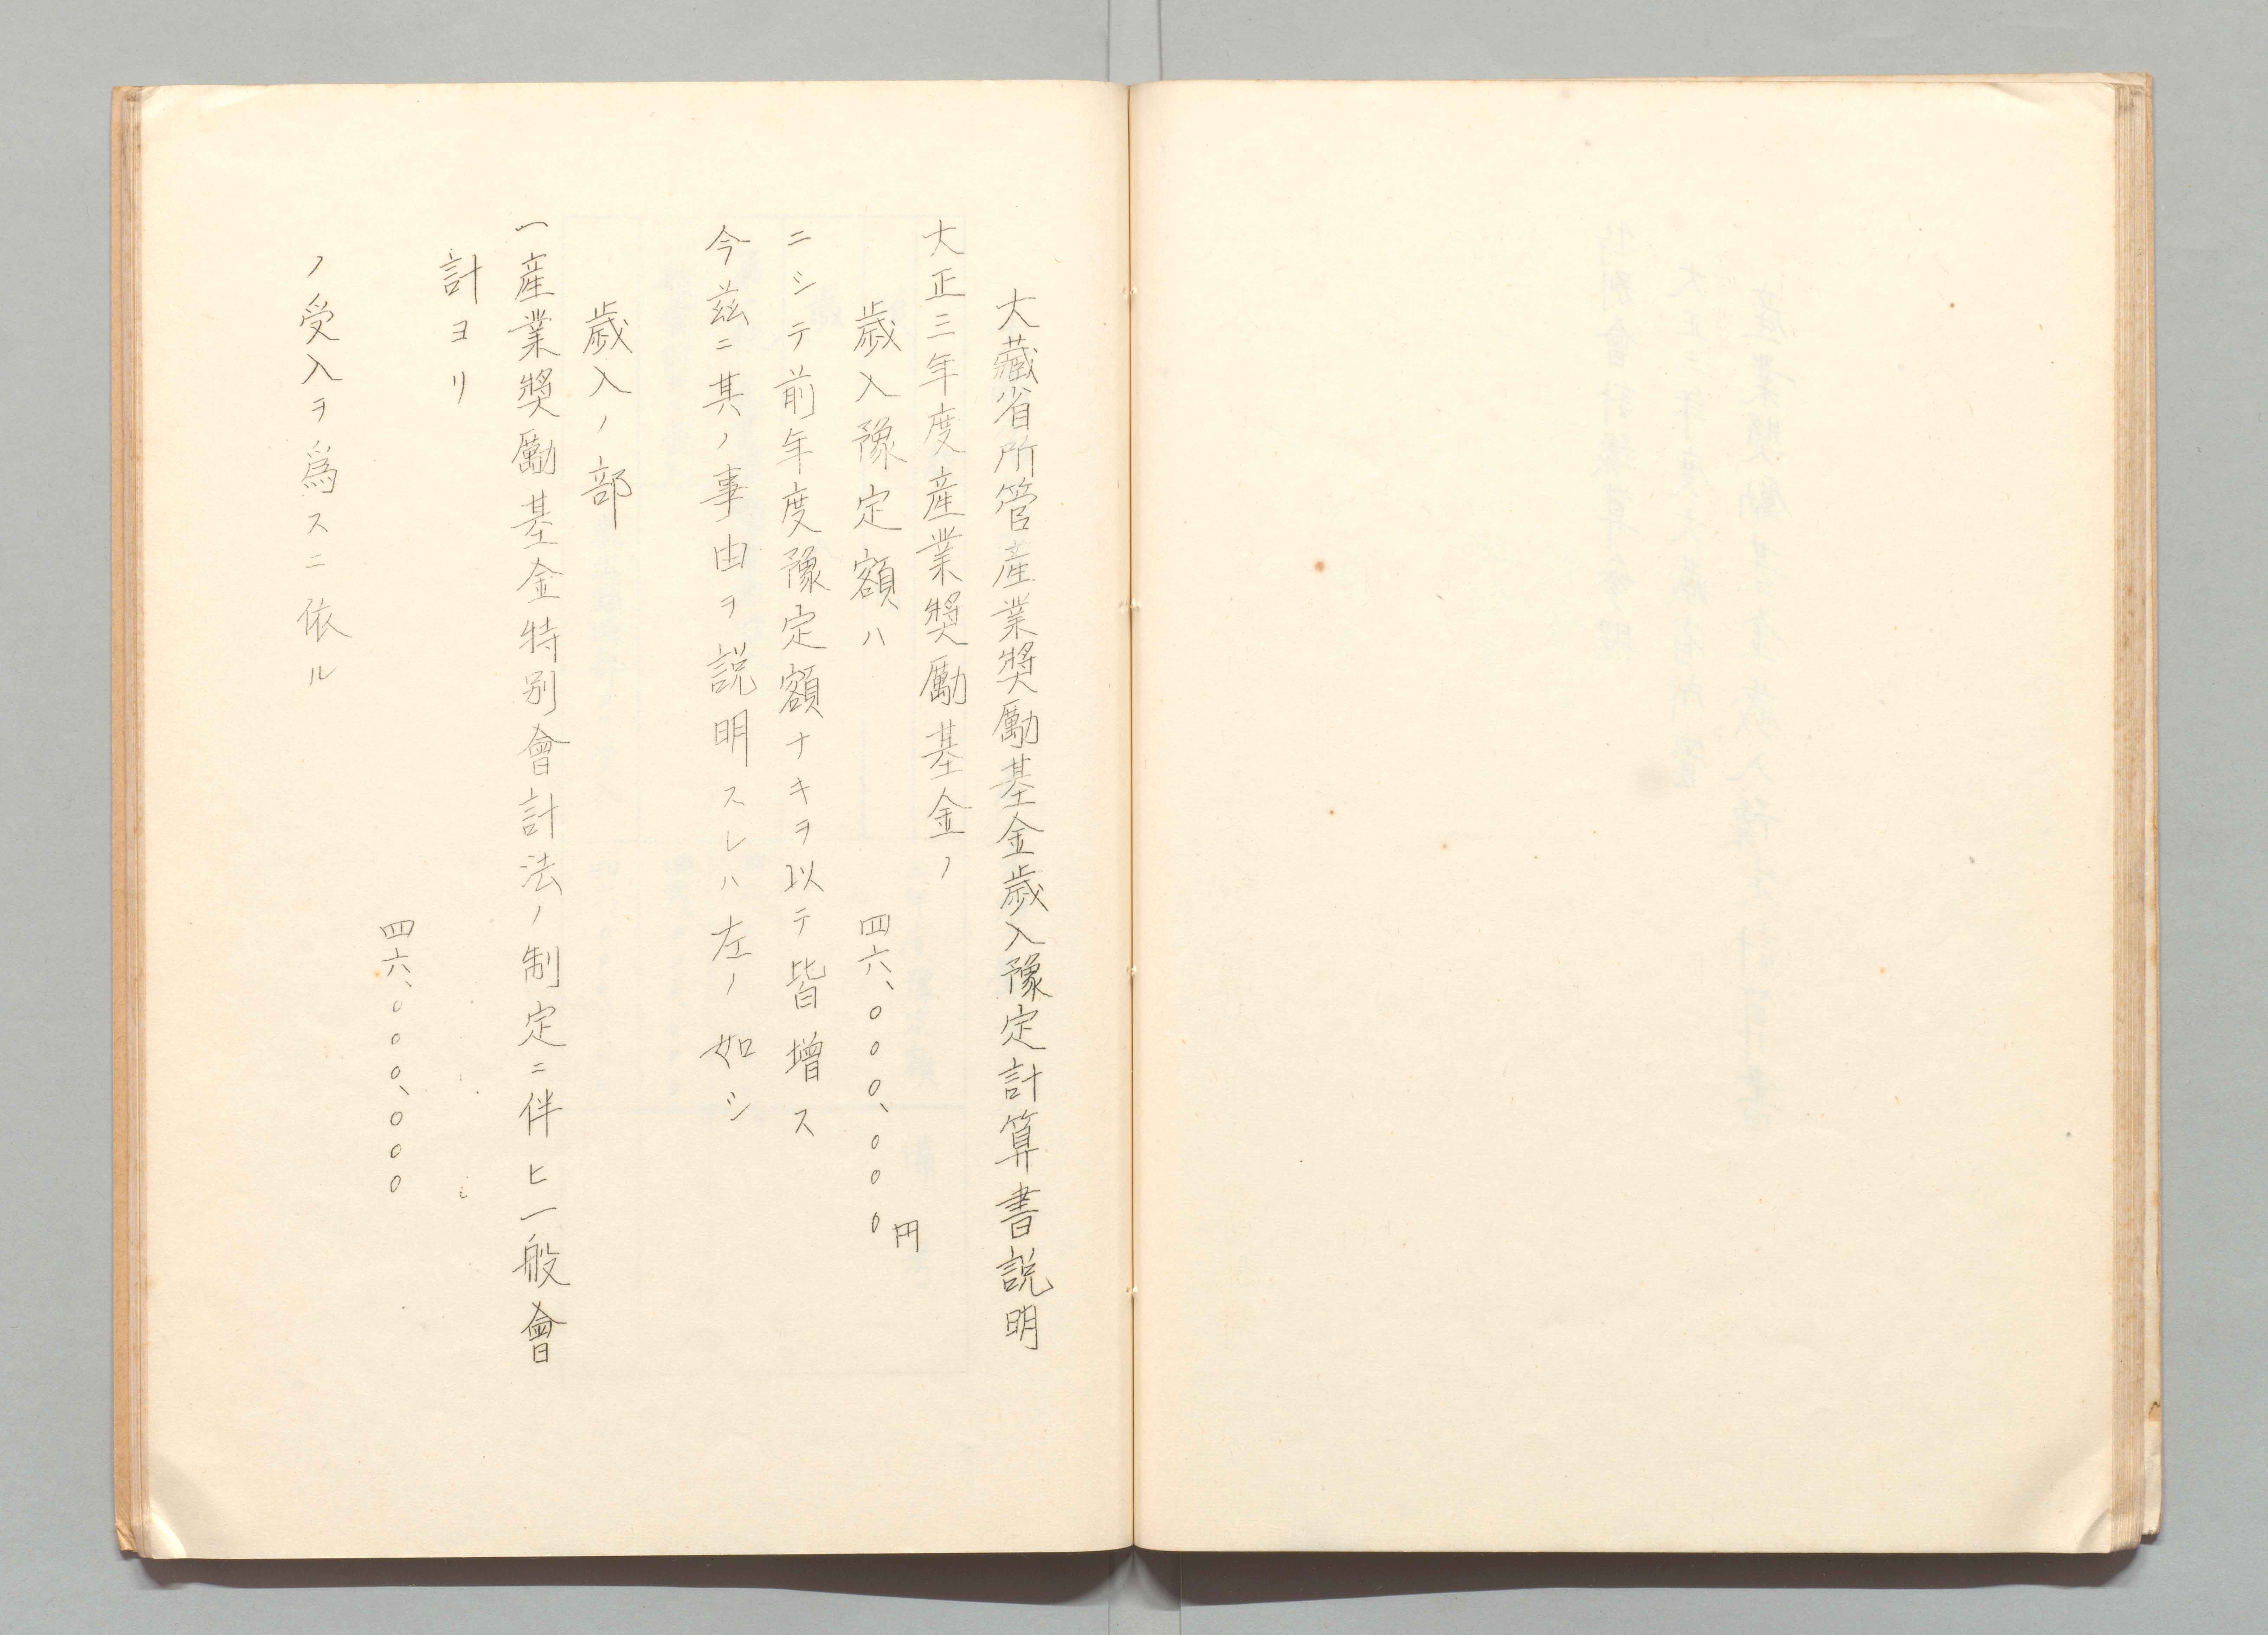 大藏省所管產業奬勵基金歲入豫定計算書說明
大正三年度產業奬勵基金ノ
歲入豫定額ハ 四六、〇〇〇、〇〇〇円
ニシテ前年度豫定額ナキヲ以テ皆增ス
今茲ニ其ノ事由ヲ說明スレハ左ノ如シ
歲入ノ部
一產業奬勵基金特別會計法ノ制定ニ伴ヒ一般會
計ヨリ
四六、〇〇〇、〇〇〇
ノ受入ヲ爲スニ依ル